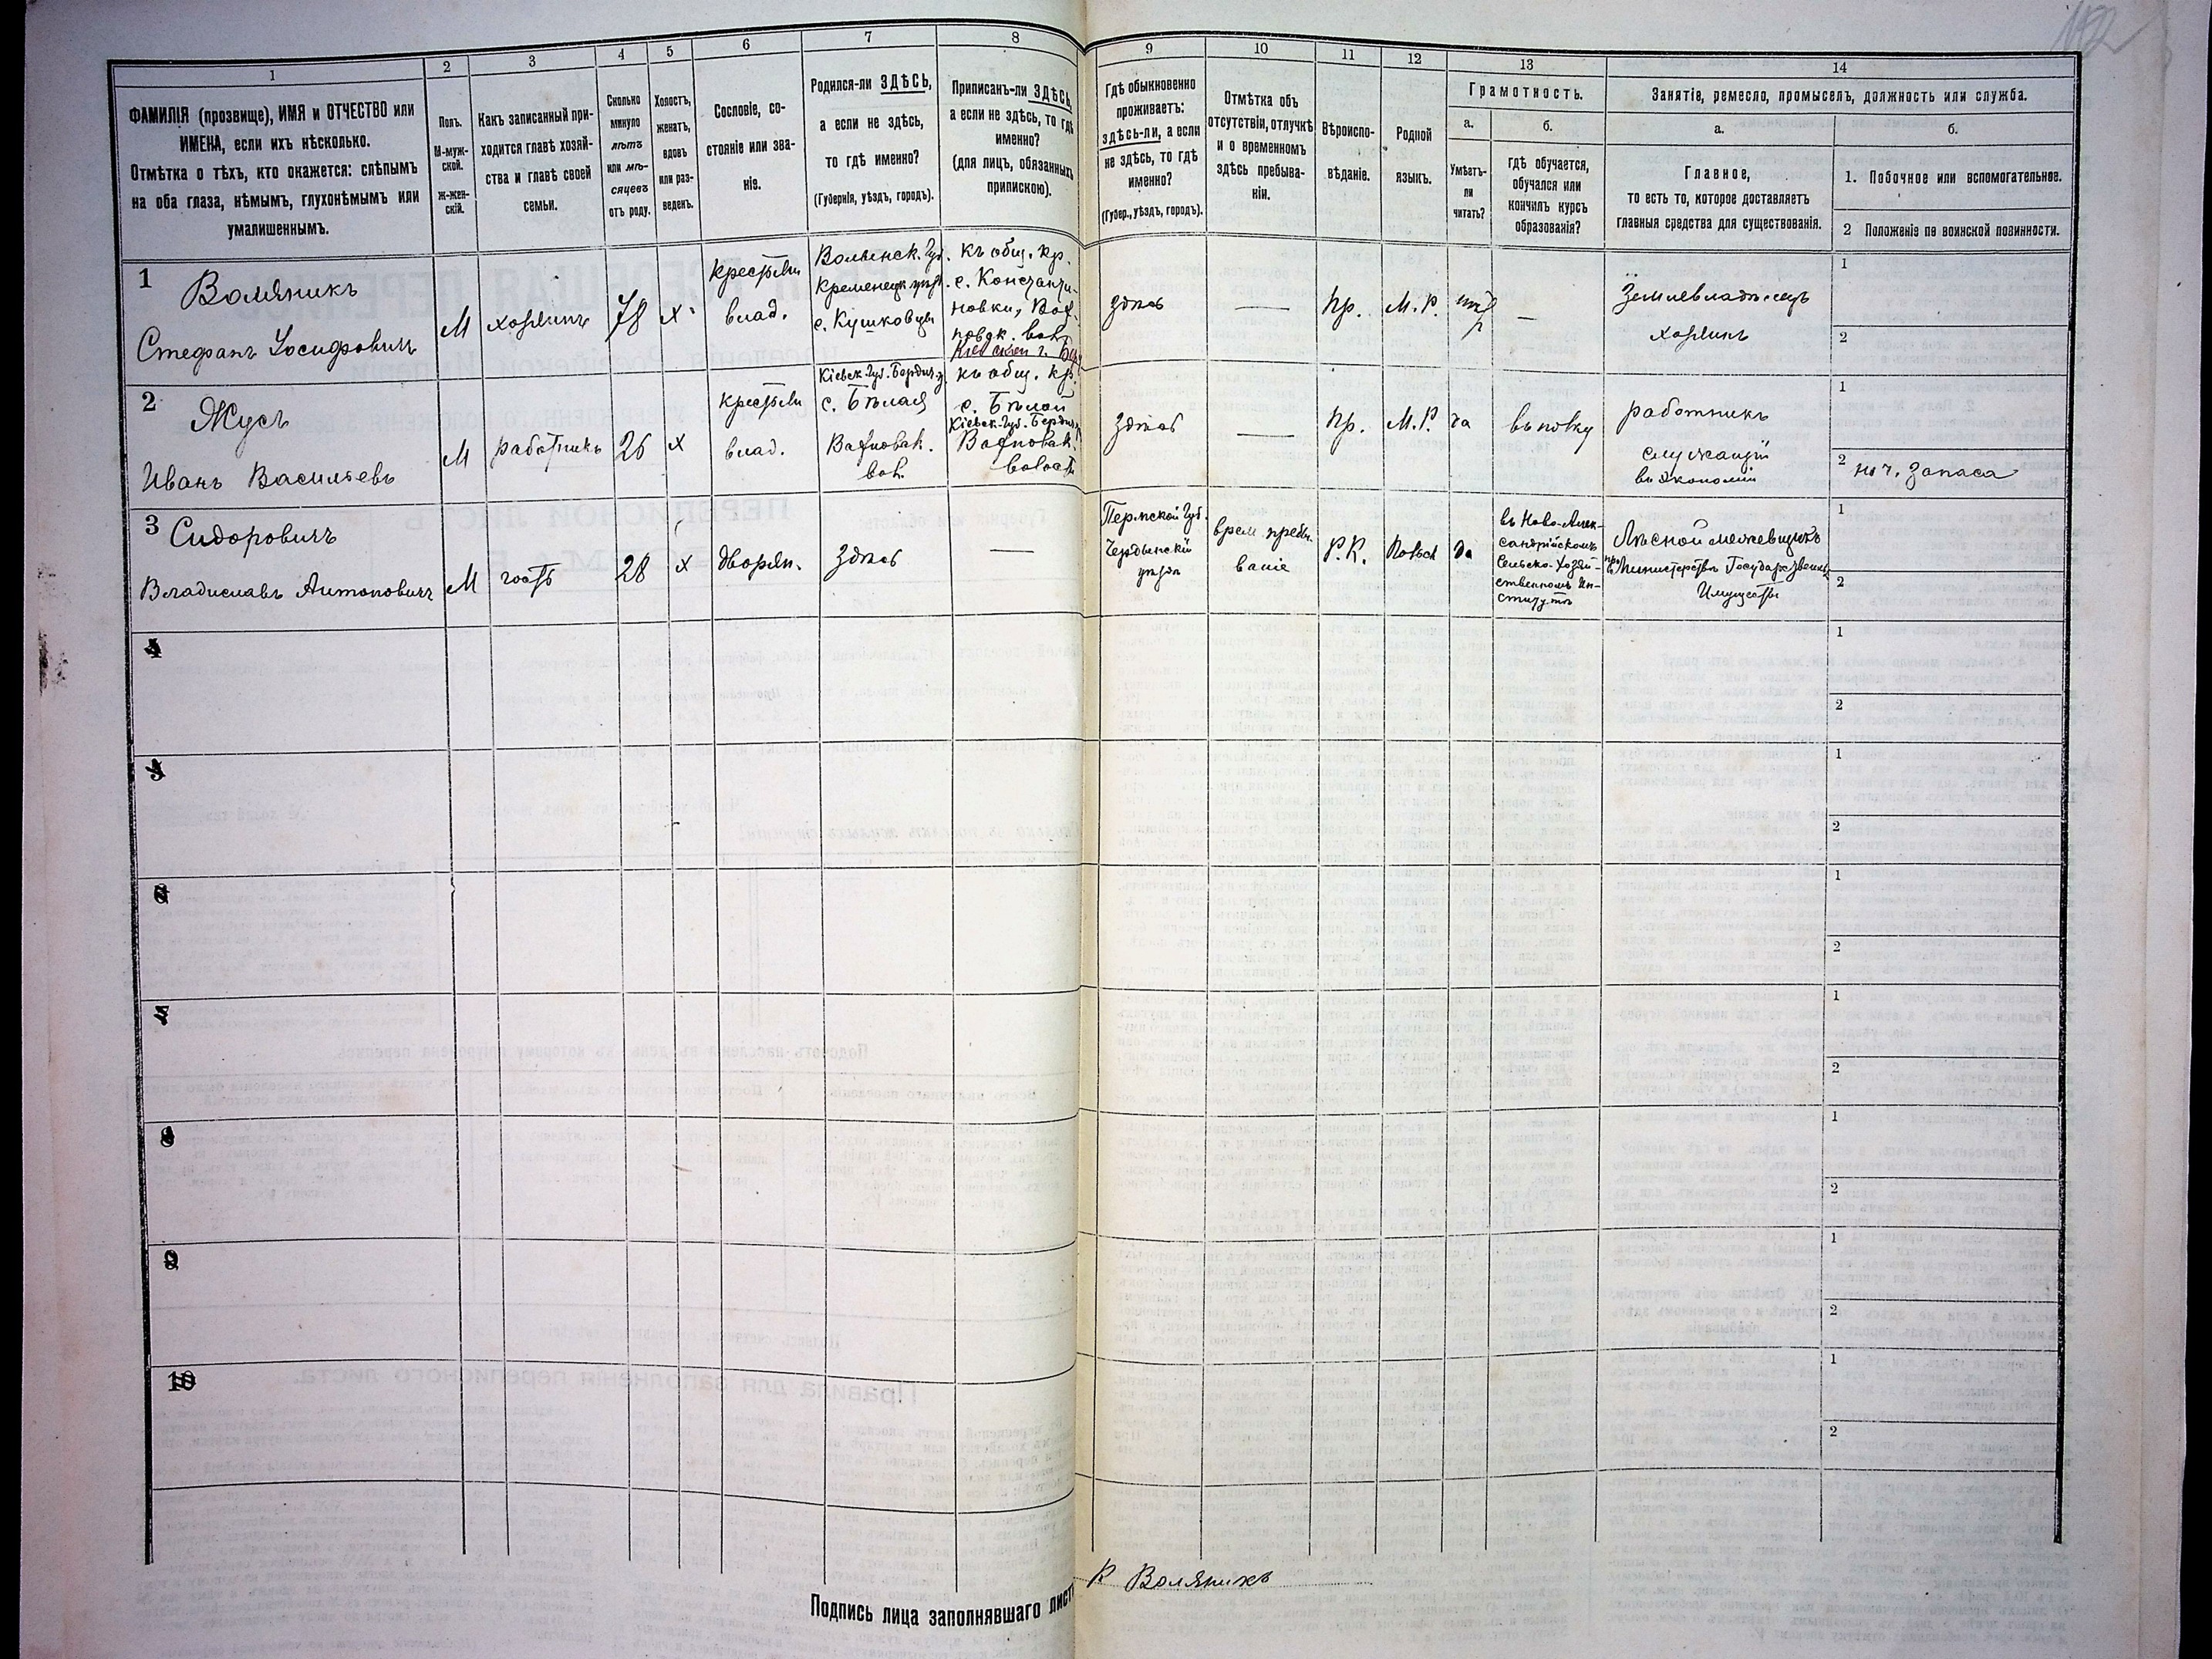 152
1
2
3
4
5
6
7
8
9
10
11
12
13
14
ФАМИЛІЯ (прозвище), ИМЯ и ОТЧЕСТВО или
ИМЕНА, если ихъ нѣсколько.
Отмѣтка о тѣхъ, кто окажется: слѣпымъ
на оба глаза, нѣмымъ, глухонѣмымъ или
умалишеннымъ.
Полъ.
М-муж-
ской.
ж-жен-
скій.
Какъ записанный при-
ходится главѣ хозяй-
ства и главѣ своей
семьи.
Сколько
минуло
лѣтъ
или мѣ-
сяцевъ
отъ роду.
Холостъ,
женатъ,
вдовъ
или раз-
веденъ.
Сословіе, со-
стояніе или зва-
ніе.
Родился-ли ЗДѢСЬ,
а если не здѣсь,
то гдѣ именно?
(Губернія, уѣздъ, городъ).
Приписанъ-ли ЗДѢСЬ,
а если не здѣсь, то гдѣ
именно?
(для лицъ, обязанныхъ
припискою).
Гдѣ обыкновенно
проживаетъ:
здѣсь-ли, а если
не здѣсь, то гдѣ
именно?
(Губер., уѣздъ, городъ).
Отмѣтка объ
отсутствіи, отлучкѣ
и о временномъ
здѣсь пребыва-
ніи.
Вѣроиспо-
вѣданіе.
Родной
языкъ.
Грамотность.
а.
Умѣетъ-
ли
читать?
б.
гдѣ обучается,
обучался или
кончилъ курсъ
образованія?
Занятіе, ремесло, промыселъ, должность или служба.
а.
Главное,
то есть то, которое доставляетъ
главныя средства для существованія.
б.
1. Побочное или вспомогательное.
2 Положеніе по воинской повинности.
1
Воляникъ
Стефанъ Іосифовичъ
М
хозяинъ
78
х
крестьян
влад.
Волынск. Губ.
Кременецк. уѣзд.
с. Кушковцы
къ общ. кр.
с. Константи-
новки,
Кіевской г.
здѣсь
—
Пр.
М. Р.
—
Землевладѣлецъ
хозяинъ
1
2
2
Жусъ
Иванъ Васильевъ
М
работникъ
26
х
крестьян
влад.
Кіевск. Губ. Бердич. у.
с. Бѣлая
Вахновск.
вол.
къ общ. кр.
с. Бѣлой
Кіевск. Губ. Бердич. у.
Вахновск.
волости
здѣсь
—
Пр.
М. Р.
да
работникъ
служащій
въ экономіи
1
2
запаса
3
Сидоровичъ
Владиславъ Антоновичъ
М
гость
28
х
дворян.
здѣсь
—
Пермской Губ.
Чердынскій
уѣздъ
врем. пребы-
ваніе
Р. К.
Польск
да
въ Ново-Алек-
сандрійскомъ
Сельско-Хозяй-
ственномъ Ин-
ститутѣ
Лѣсной
при Министерствѣ Государственныхъ
Имуществъ
1
2
4
1
2
5
1
2
6
1
2
7
1
2
8
1
2
9
1
2
10
1
2
Подпись лица заполнявшаго листъ
Воляникъ